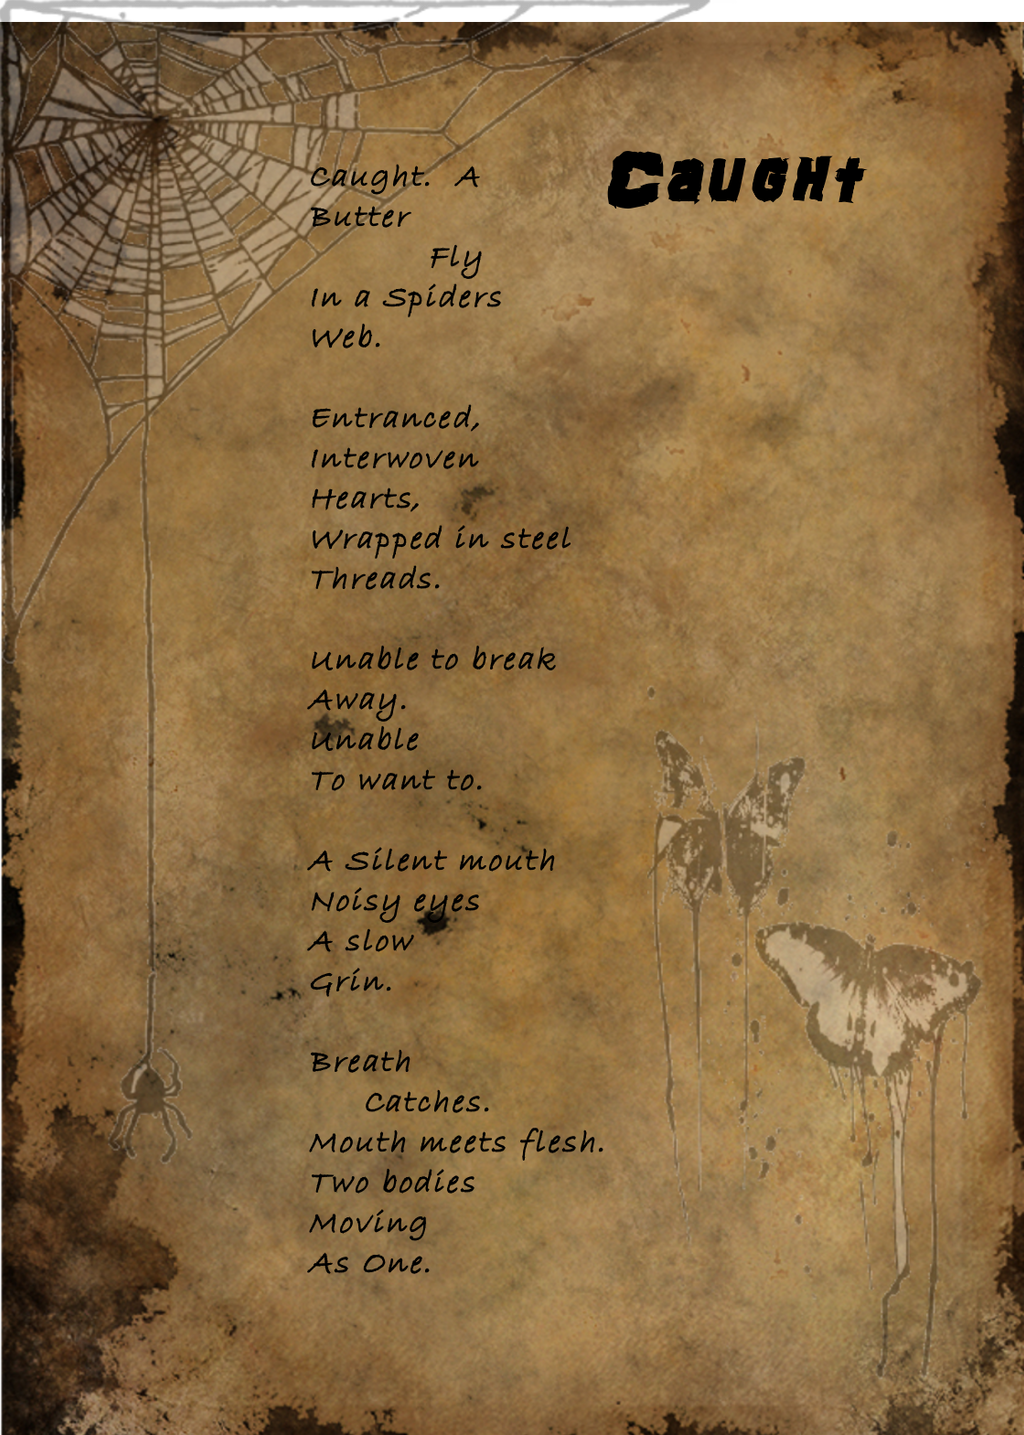 Caught
Caught. A
Butter
Fly
In a Spiders
Web.
Entranced,
Interwoven
Hearts,
Wrapped in steel
Threads.
Unable to break
Away.
Unable
To want to.
A Silent mouth
Noisy eyes
A slow
Grin.
Breath
Catches.
Mouth meets flesh.
Two bodies
Moving
As One.